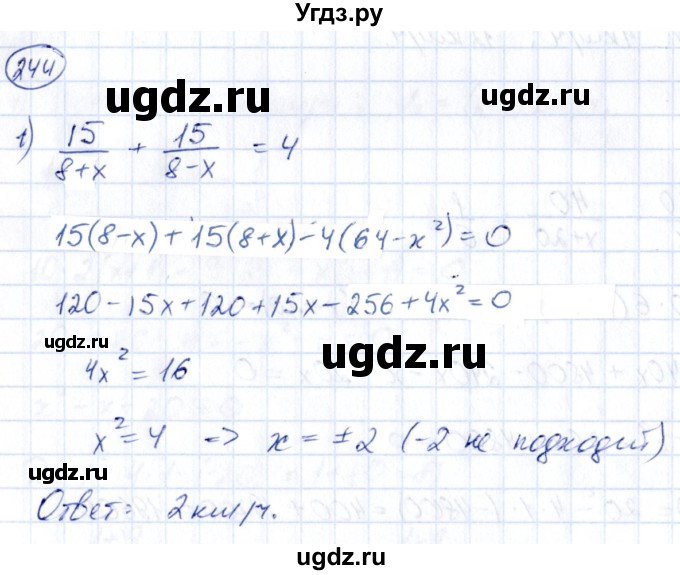 Угдз.ру
244
ugdz.ru ugdz.ru
1) 15/(8+x) + 15/(8-x) = 4
15(8-x)+15(8+x)-4(64-x²)=0
120-15x+120+15x-256+4x²=0
ugdz.ru
ugdz.ru
4x²=16
x²=4 => x=±2 (-2 не подходит)
ugdz.ru
Ответ: 2км/ч.
ugdz.ru
ugdz.ru